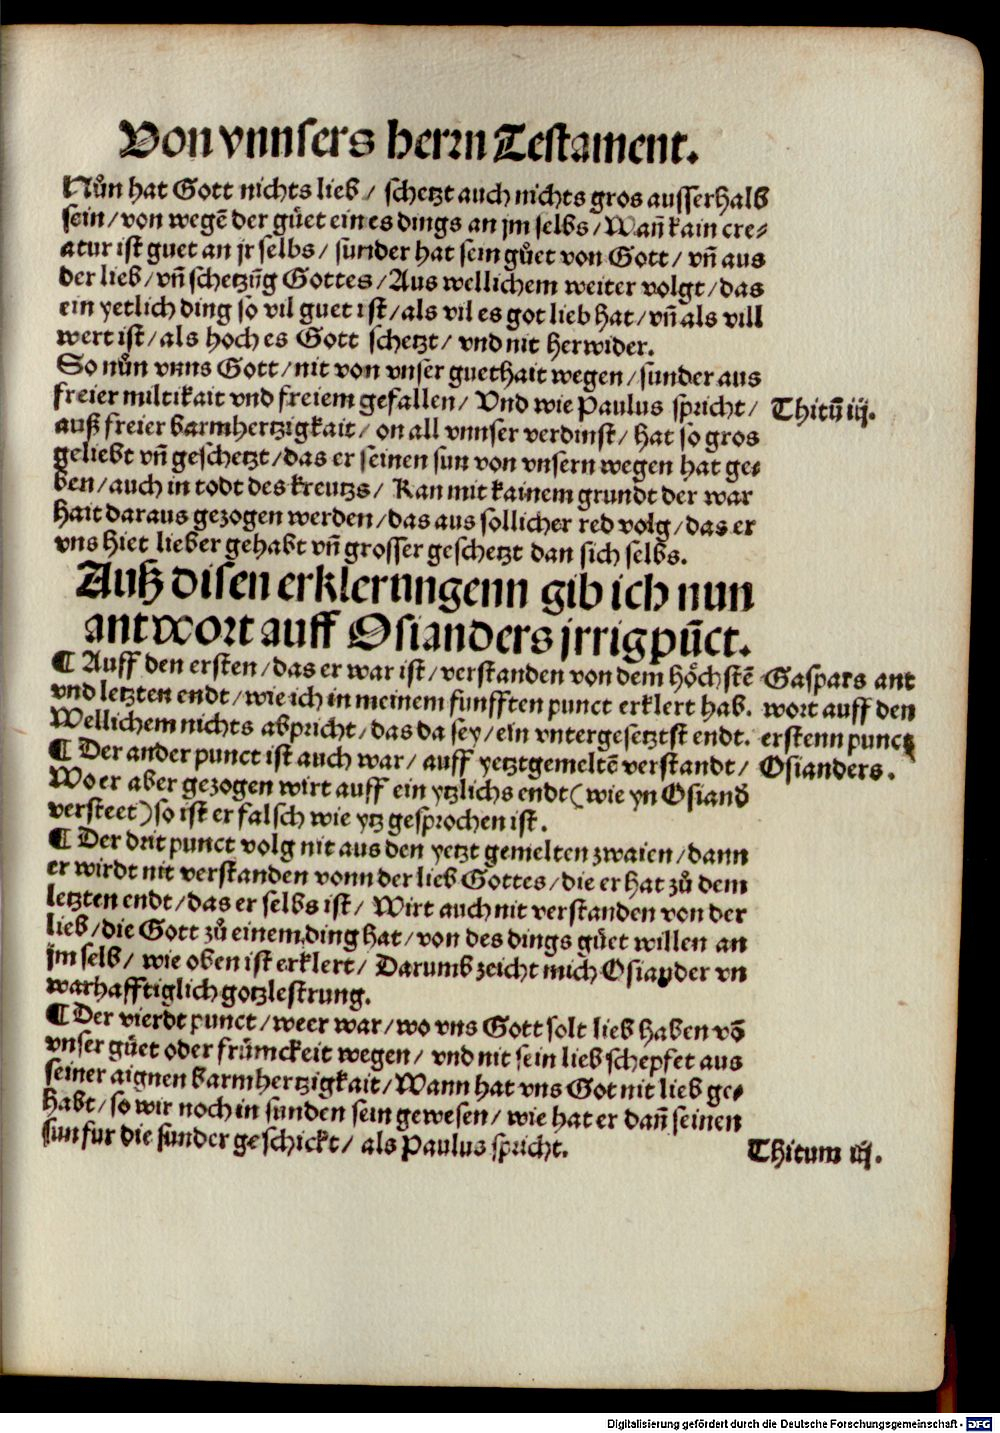 Von vnnsers herrn Testament.
Nůn hat Gott nichts lieb/ schetzt auch nichts gros ausserhalb
sein/ von wegē der gůet eines dings an jm selbs/ Wañ kain cre⸗
atur ist guet an jr selbs/ sunder hat sein gůet von Gott/ vñ aus
der lieb/ vñ schetzūg Gottes/ Aus wellichem weiter volgt/ das
ein yetlich ding so vil guet ist/ als vil es got lieb hat/ vñ als vill
wert ist/ als hoch es Gott schetzt/ vnd nit herwider.
So nůn vnns Gott/ nit von vnser guethait wegen/ sunder aus
freier miltikait vnd freiem gefallen/ Vnd wie Paulus spricht/
Thitū iij.
auß freier barmhertzigkait/ on all vnnser verdinst/ hat so gros
geliebt vñ geschetzt/ das er seinen sun von vnsern wegen hat ge⸗
ben/ auch in todt des kreutzs/ Kan mit kainem grundt der war
hait daraus gezogen werden/ das aus sollicher red volg/ das er
vns hiet lieber gehabt vñ grosser geschetzt dan sich selbs.
Auß disen erklerungenn gib ich nun
antwort auff Osianders jrrig pūct.
¶ Auff den ersten/ das er war ist/ verstanden von dem höchstē
vnd letzten endt/ wie ich in meinem funfften punct erklert hab.
Wellichem nichts abpricht/ das da sey/ ein vntergesetztst endt.
Gaspars ant
wort auff den
erstenn punct
Osianders.
¶ Der ander punct ist auch war/ auff yetztgemeltē verstandt/
Wo er aber gezogen wirt auff ein ytzlichs endt (wie yn Osiand̄
versteet) so ist er falsch wie ytz gesprochen ist.
¶ Der drit punct volg nit aus den yetzt gemelten zwaien/ dann
er wirdt nit verstanden vonn der lieb Gottes/ die er hat zů dem
letzten endt/ das er selbs ist/ Wirt auch nit verstanden von der
lieb/ die Gott zů einem ding hat/ von des dings gůet willen an
jm selb/ wie oben ist erklert/ Darumb zeicht mich Osiander vn
warhafftiglich gotzlestrung.
¶ Der vierdt punct/ weer war/ wo vns Gott solt lieb haben vō
vnser gůet oder frümckeit wegen/ vnd nit sein lieb schepfet aus
seiner aignen barmhertzigkait/ Wann hat vns Got nit lieb ge⸗
habt/ so wir noch in sunden sein gewesen/ wie hat er dañ seinen
sun fur die sunder geschickt/ als Paulus spricht.
Thitum iij.
Digitalisierung gefördert durch die Deutsche Forschungsgemeinschaft - DFG